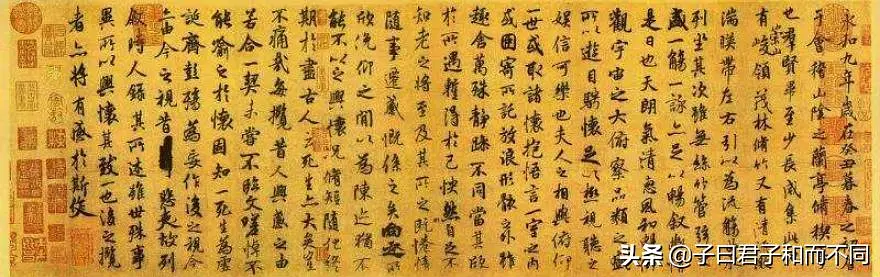 永和九年歲在癸丑暮春之初
于會稽山陰之蘭亭脩稧
也群賢畢至少長咸集
有崇山峻領茂林脩竹又有清
湍暎帶左右引以為流觴
列坐其次雖無絲竹管弦
盛一觴一詠亦足以暢敘
是日也天朗氣清惠風和
觀宇宙之大俯察品類之盛
所以遊目騁懷足以極視聽之
娛信可樂也夫人之相與俯仰
一世或取諸懷抱悟言一室之內
或因寄所託放浪形骸之外雖
趣舍萬殊靜躁不同當其欣
於所遇蹔得於己怏然自足不
知老之將至及其所之既惓情
隨事遷感慨係之矣向之所
欣俛仰之間以為陳迹猶不
能不以之興懷況脩短隨化終
期於盡古人云死生亦大矣豈
不痛哉每攬昔人興感之由
若合一契未嘗不臨文嗟悼不
能喻之於懷固知一死生為虛
誕齊彭殤為妄作後之視今
亦由今之視昔悲夫故列
敘時人錄其所述雖世殊事
異所以興懷其致一也後之攬
者亦將有感於斯文
头条 @子曰君子和而不同